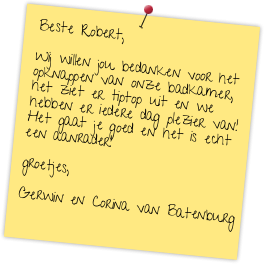 Beste Robert,
Wij willen jou bedanken voor het
opknappen van onze badkamer,
het ziet er tiptop uit en we
hebben er iedere dag plezier van!
Het gaat je goed en het is echt
een aanrader!
groetjes,
Gerwin en Corina van Batenburg